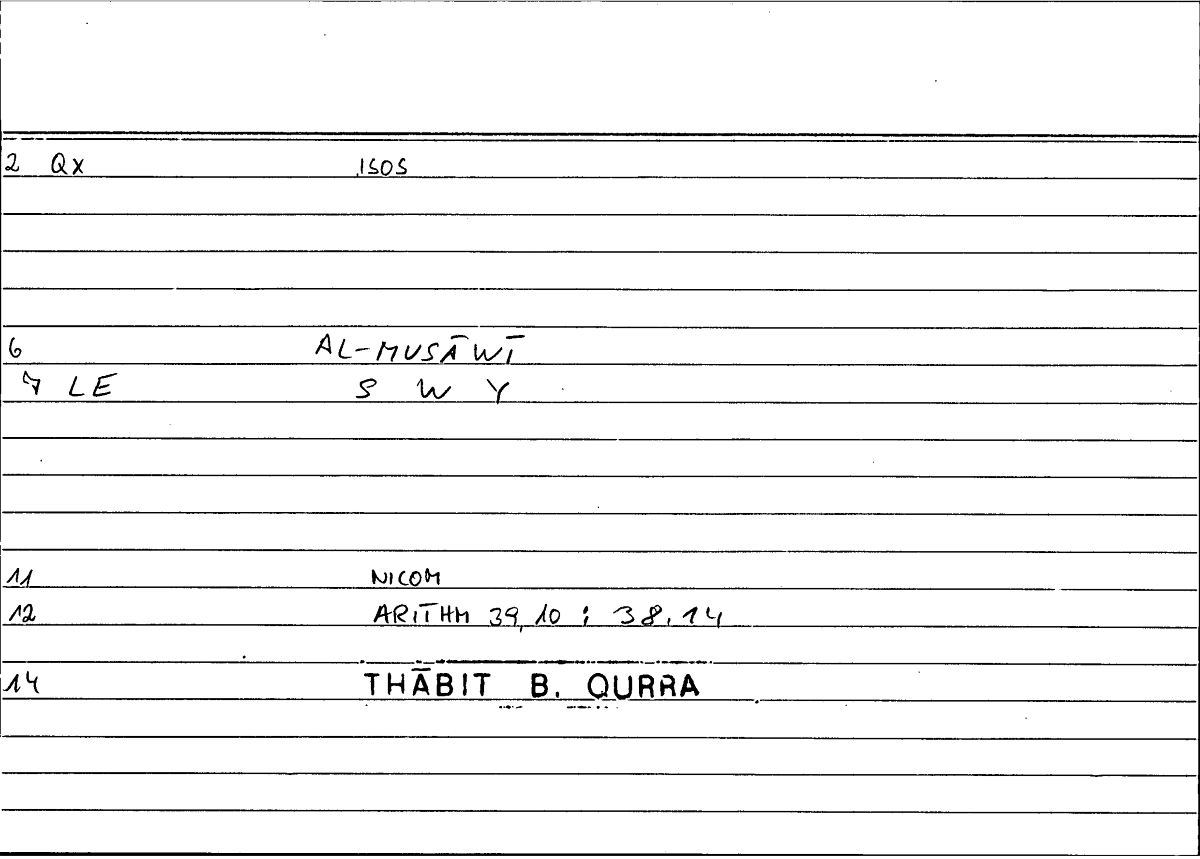 2 QX ISOS
6 AL-MUSĀWĪ
7 LE S W Y
11 NICOM
12 ARITHM 39,10 ; 38,14
14 THĀBIT B. QURRA